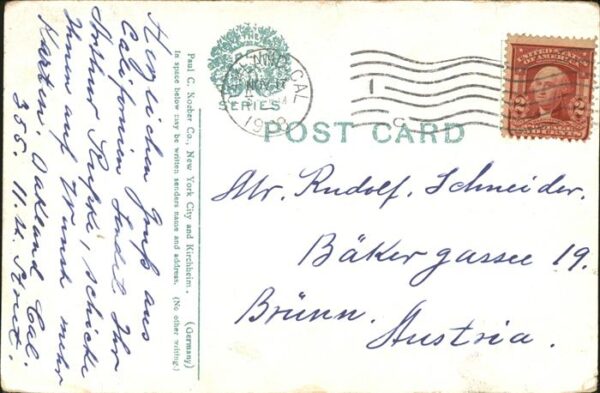 Herzlichen Gruß aus
Californien sendet Ihr
Arthur schicke
Ihnen auf Wunsch mehr
Karten. Oakland Cal.
355. 11. th Street.
Paul C. Koeber Co., New York City and Kirchheim. (Germany)
In space below may be written senders name and address. (No other writing.)
SERIES
CAL
NOV
POST CARD
UNITED STATES
OF AMERICA
2 2
Mr. Rudolf. Schneider.
Bäkergassee 19.
Brünn.
Austria.